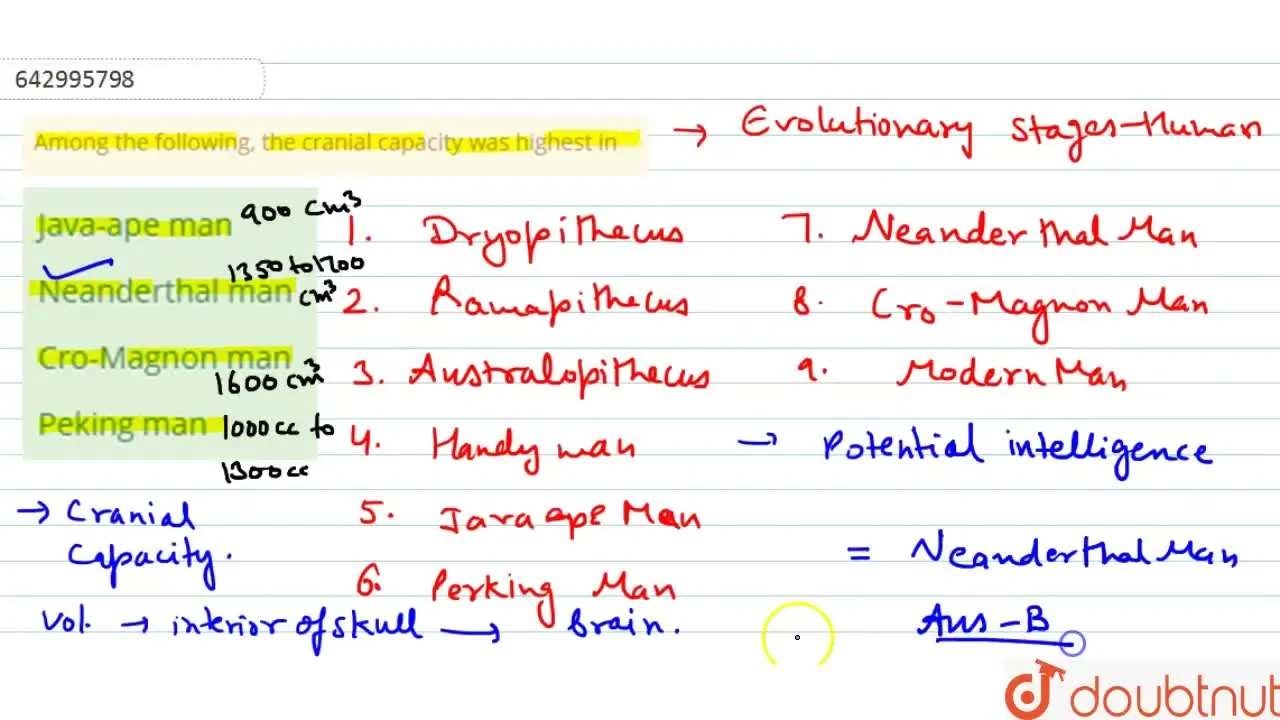 642995798
Among the following, the cranial capacity was highest in
→ Evolutionary stages-Human
Java-ape man 900 cm³
Neanderthal man 1350 to 1700 cm³
Cro-Magnon man 1600 cm³
Peking man 1000cc to 1300cc
1. Dryopithecus
2. Ramapithecus
3. Australopithecus
4. Handy man
5. Java ape Man
6. Perking Man
7. Neanderthal Man
8. Cro-Magnon Man
9. Modern Man
→ Potential intelligence
= Neanderthal Man
Ans-B
→ Cranial
Capacity.
Vol. → interior of skull → brain.
doubtnut